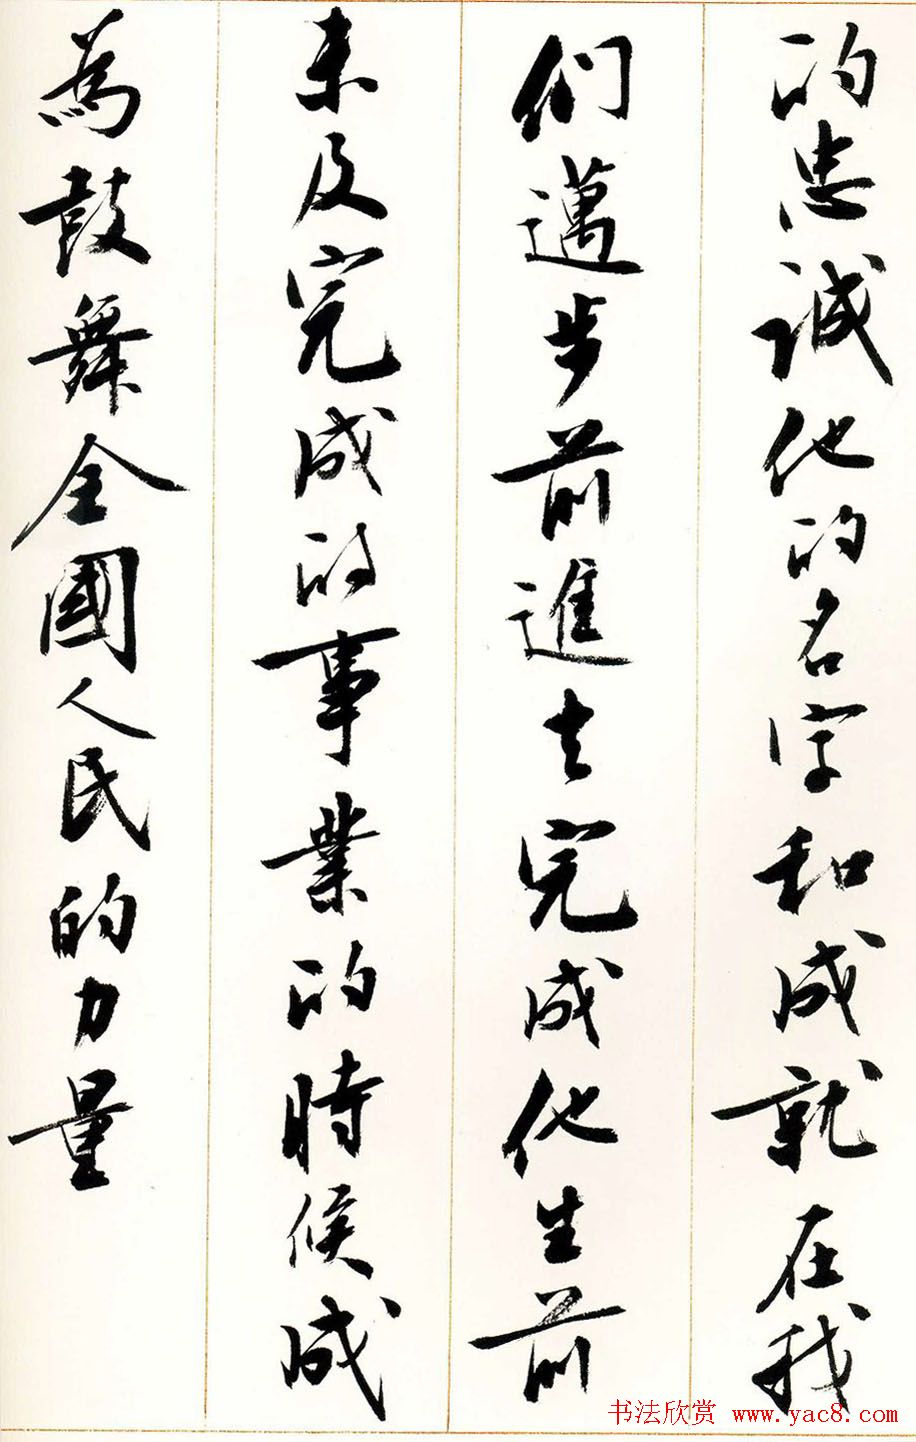 的忠誠他的名字和成就在我
們邁步前進去完成他生前
未及完成的事業的時候成
為鼓舞全國人民的力量
书法欣赏 www.yac8.com